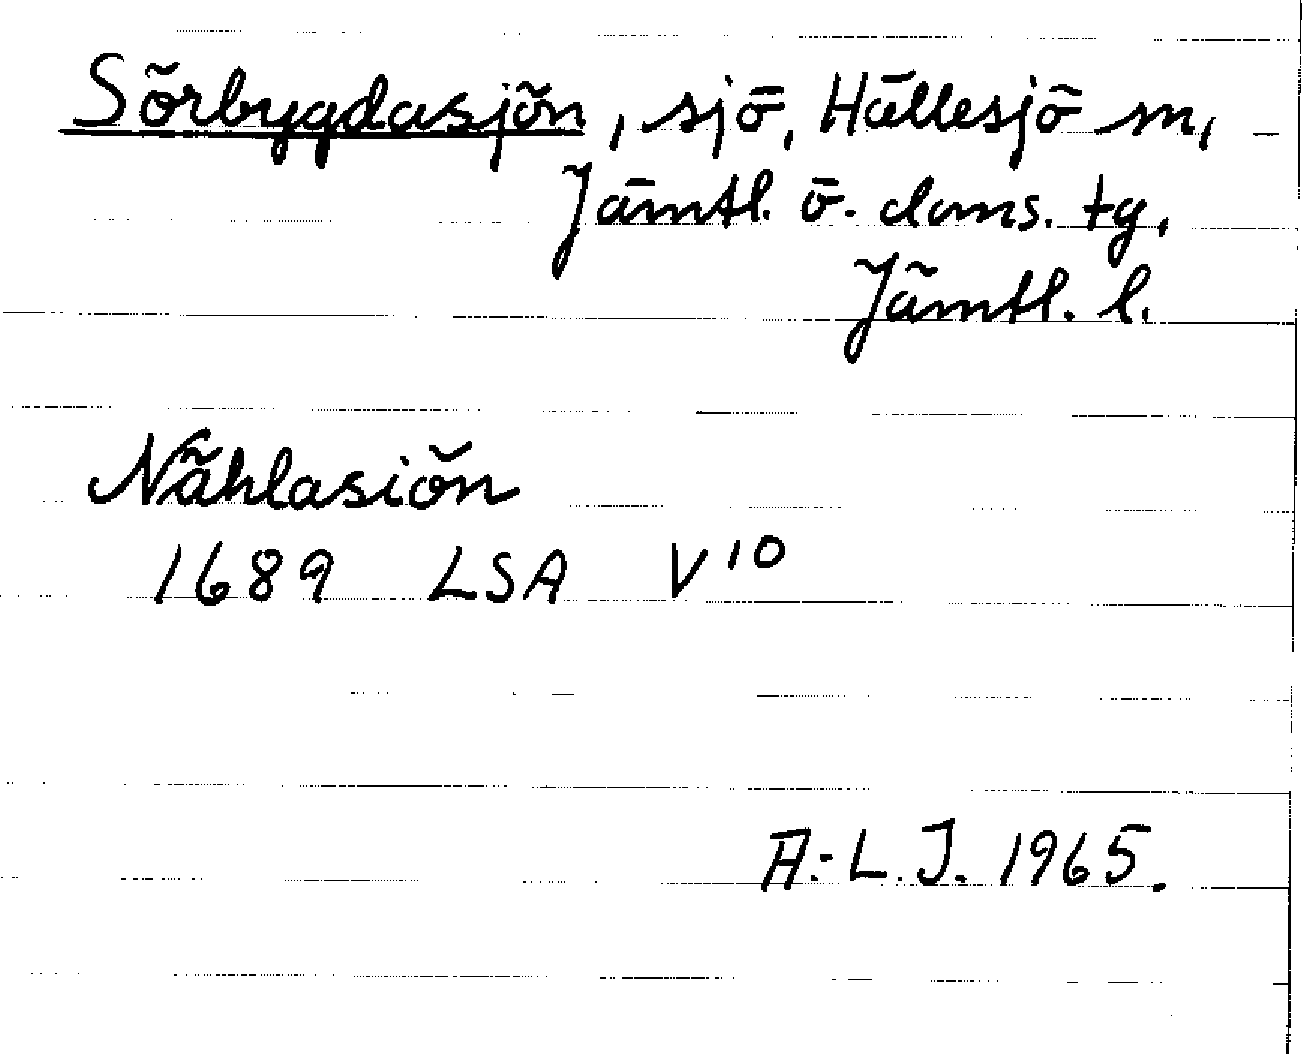 Sörbygdasjön, sjö, Hällesjö sn,
Jämtl. ö. doms. tg,
Jämtl. l.
Nählasiön
1689 LSA V10
A.-L.J. 1965.